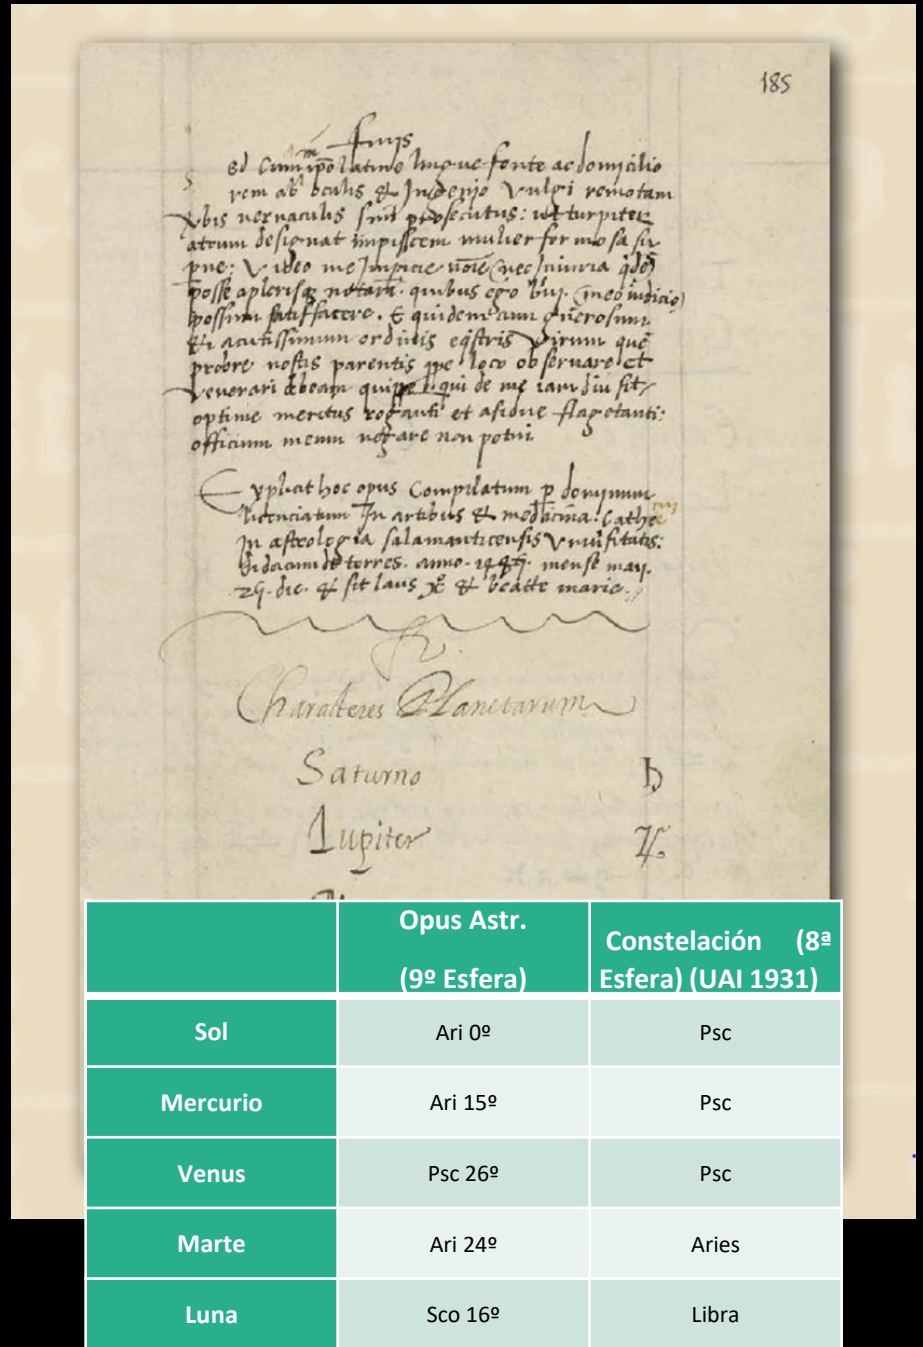 185
finis
sed cum ipo latine lingue fonte ac domicilio
rem ab oculis & Ingenio Vulgi remotam
Xbis vernaculis sim prosecutus: ut turpiter
atrum designat impiscem mulier formosa su
pne: Video me
posse a plerisq notari. quibus ego
possum satisfacere. Equidem cum generosum
et acutissimum ordinis eqstris Virum que
probre nostis parentis loco observare et
Venerari debeam qui de me iam diu sit
optime meritus roganti et asidue flagetanti:
officium meum negare non potui
Explicit hoc opus Compilatum p dominum
licenciatum In artibus & medicina. Cathe
In astrologia salamanticensis Vniusitatis:
didacum de torres. anno. mense may.
die. & sit laus & beatte marie.
Characteres Planetarum
Saturno ♄
Iupiter ♃
Opus Astr.
(9º Esfera)
Constelación (8ª
Esfera) (UAI 1931)
Sol Ari 0º Psc
Mercurio Ari 15º Psc
Venus Psc 26º Psc
Marte Ari 24º Aries
Luna Sco 16º Libra